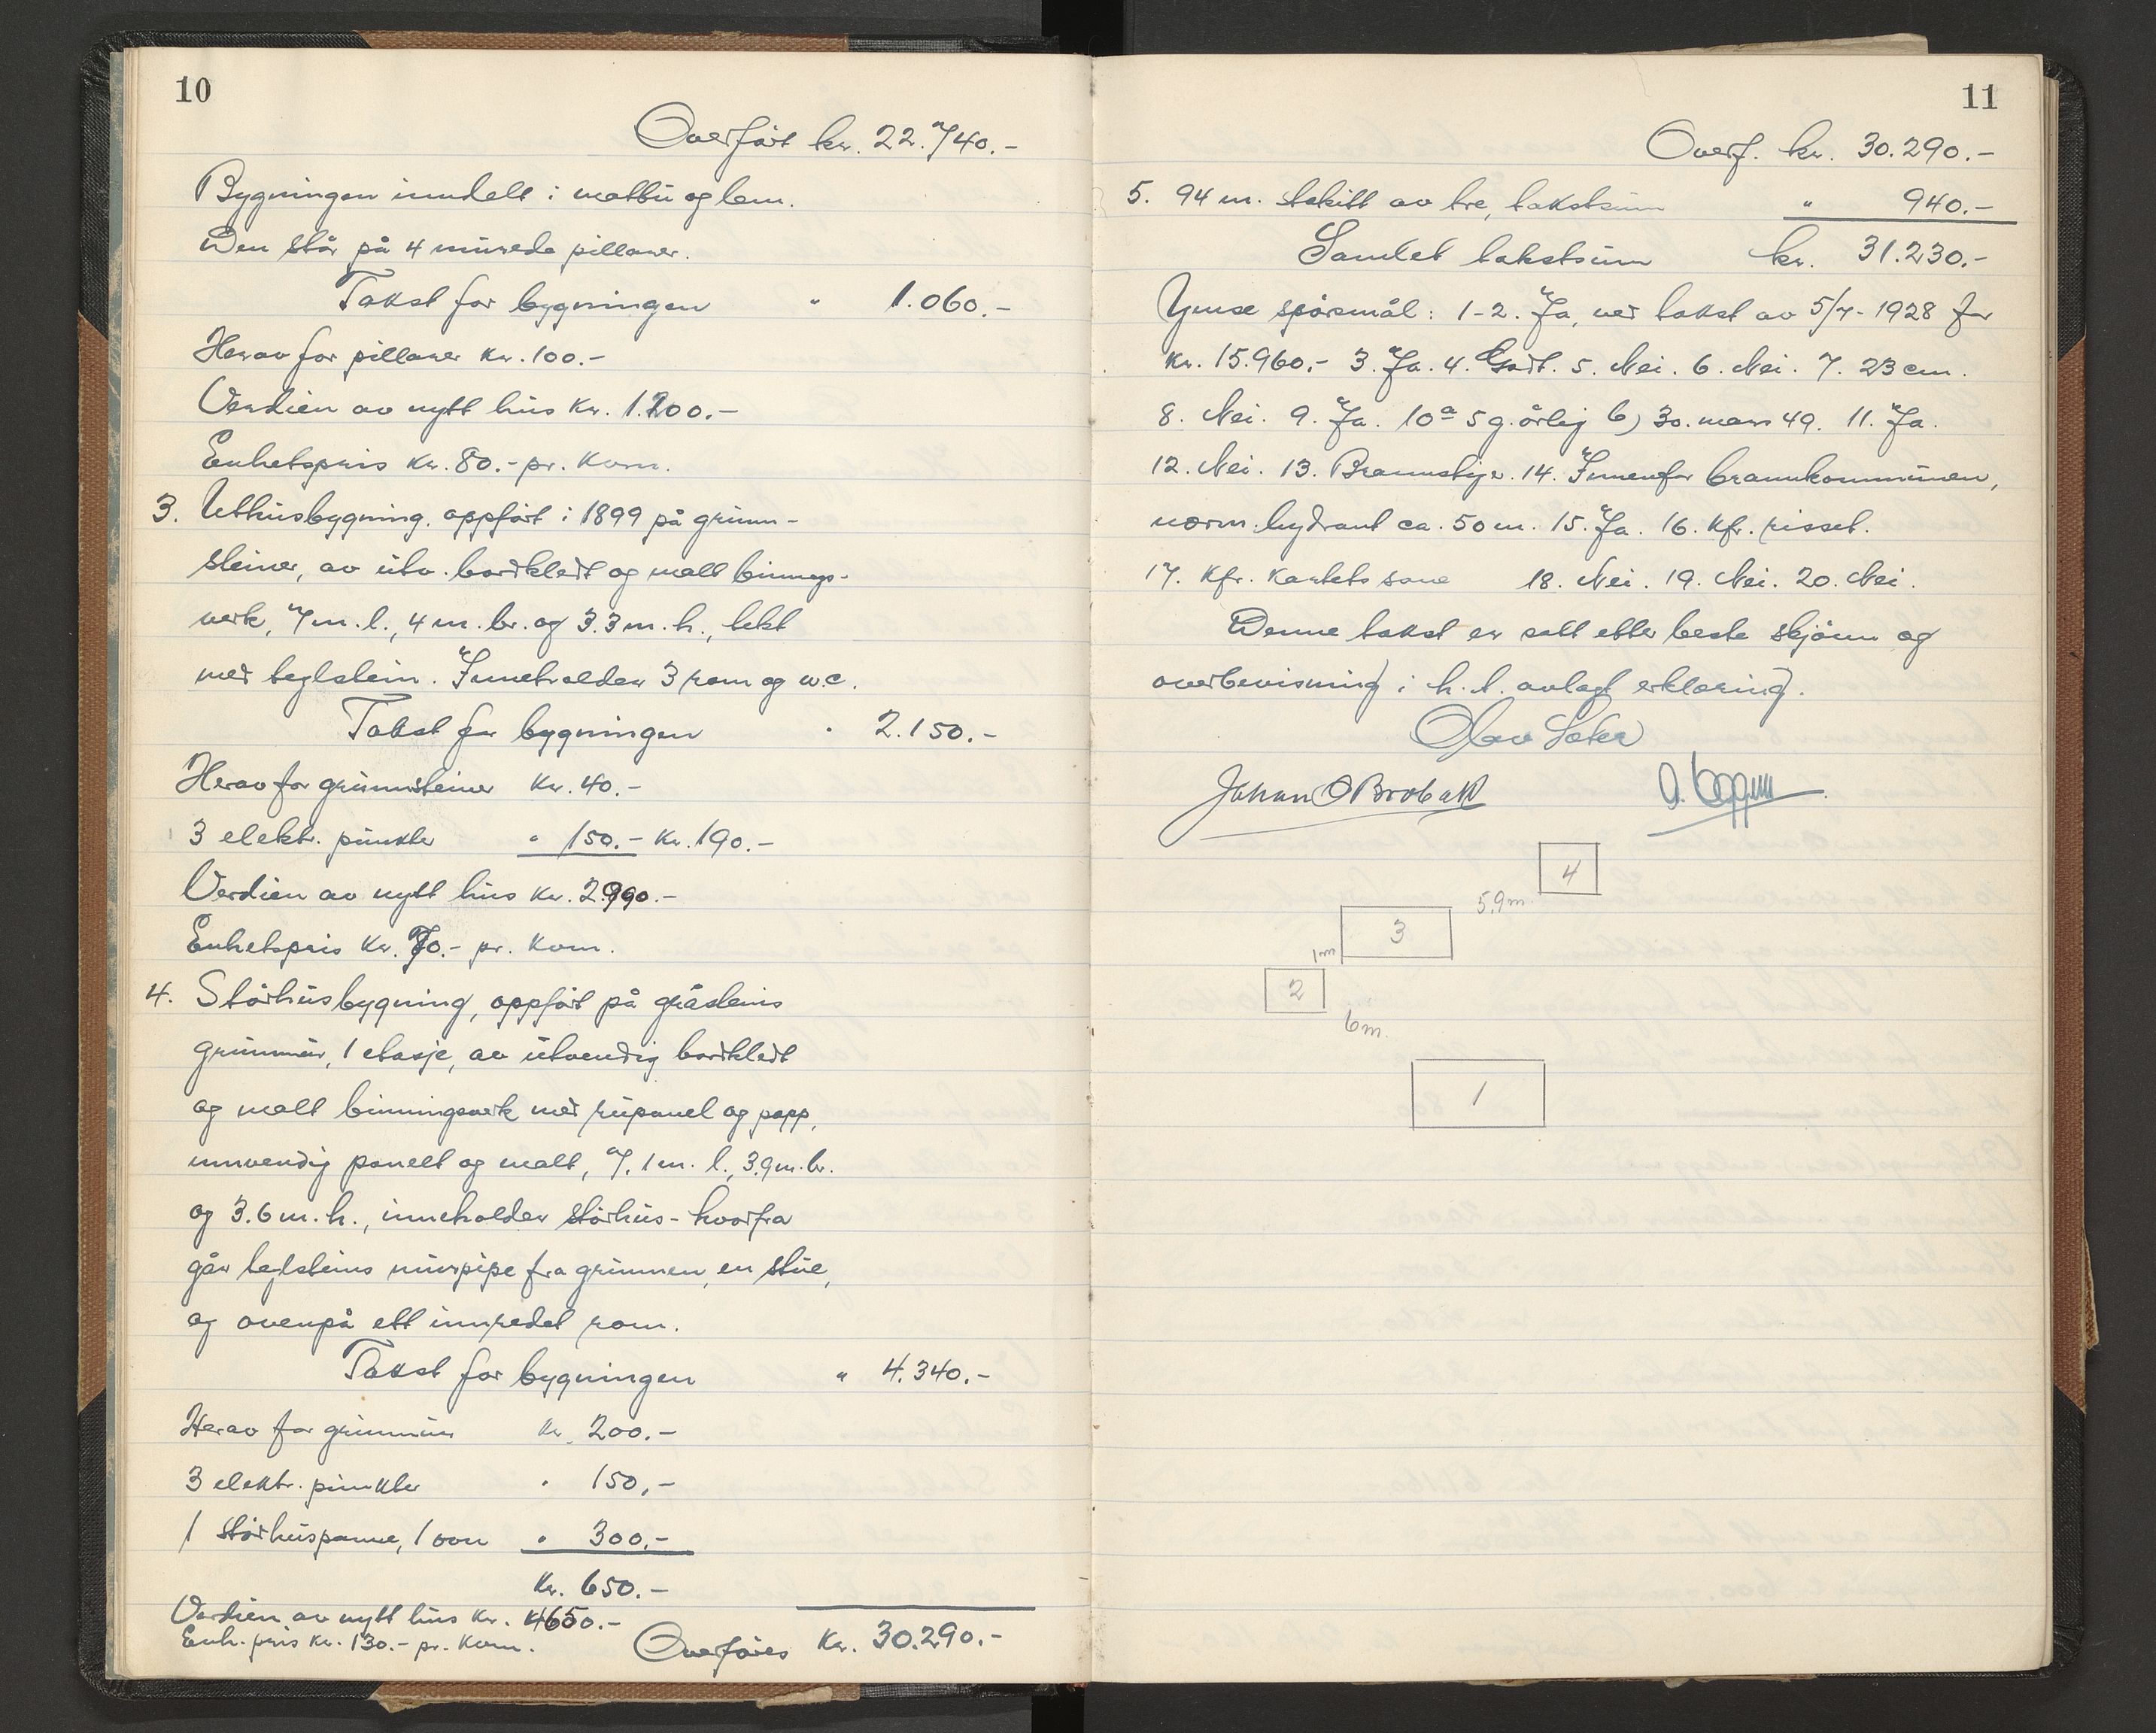 10
Overført kr. 22.740.-
Bygningen inndelt i matbu og lem.
Den står på 4 murede pillarer.
Takst for bygningen " 1.060.-
Herav for pillarer kr. 100.-
Verdien av nytt hus kr. 1.200.-
Enhetspris kr. 80.- pr. kvm.
3. Uthusbygning, oppført i 1899 på grunn-
steiner, av utv. bordkledt og malt binnings-
verk, 7 m. l., 4 m. br. og 3.3 m. h., tekt
med teglstein. Inneholder 3 rom og w.c.
Takst for bygningen " 2.150.-
Herav for grunnsteiner kr. 40.-
3 elektr. punkter " 150.- kr. 190.-
Verdien av nytt hus kr. 2.990.-
Enhetspris kr. 70.- pr. kvm.
4. Stórhusbygning, oppført på gråsteins
grunnmur, 1 etasje, av utvendig bordkledt
og malt binningsverk med rupanel og papp,
innvendig panelt og malt, 7,1 m. l., 3.9 m. br.
og 3.6 m. h., inneholder stórhus - hvorfra
går teglsteins murpipe fra grunnen, en stue,
og ovenpå ett innredet rom.
Takst for bygningen " 4.340.-
Herav for grunnmur kr. 200.-
3 elektr. punkter " 150,-
1 stórhuspanne, 1 ovn " 300,-
kr. 650.-
Verdien av nytt hus kr. 4650.-
Enh. pris kr. 130.- pr. kvm.
Overføres kr. 30.290.-
11
Overf. kr. 30.290.-
5. 94 m. stakitt av tre, takstsum " 940.-
Samlet takstsum kr. 31.230.-
Ymse spørsmål: 1-2. Ja, ved takst av 5/7-1928 for
kr. 15.960.- 3. Ja. 4. Godt. 5. Nei. 6. Nei. 7. 23 cm.
8. Nei. 9. Ja. 10 a 5 g. årlig b) 30. mars 49. 11. Ja.
12. Nei. 13. Brannstige. 14. Innenfor brannkommunen,
norm. hydrant ca. 50 m. 15. Ja. 16. Kfr. risset.
17. Kfr. kartets sone 18. Nei. 19. Nei. 20. Nei.
Denne takst er satt etter beste skjønn og
overbevisning i h. t. avlagt erklæring.
Olav Sæter
Johan O Brobakk
4
5.9 m
3
1 m
2
6 m.
1